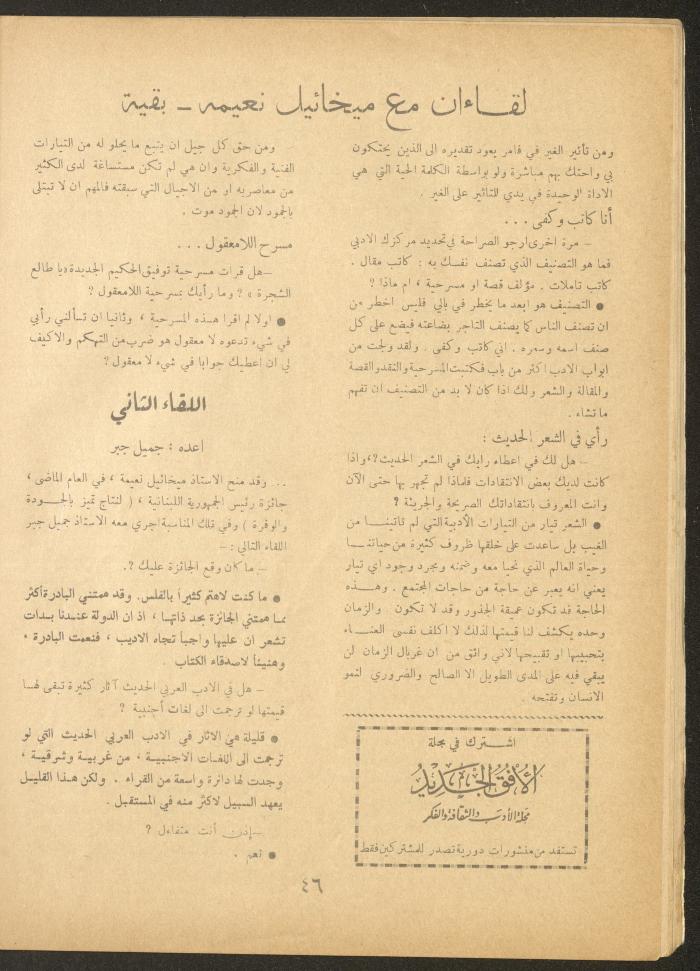 لقاءان مع ميخائيل نعيمه - بقية
ومن تأثير الغير في فامر يعود تقديره الى الذين يحتكون
بي واحتك بهم مباشرة ولو بواسطة الكلمة الحية التي هي
الاداة الوحيدة في يدي للتاثير على الغير .
أنا كاتب وكفى . . .
- مرة اخرى ارجو الصراحة في تحديد مركزك الادبي
فما هو التصنيف الذي تصنف نفسك به : كاتب مقال .
كاتب تاملات . مؤلف قصة او مسرحية ، ام ماذا ؟
● التصنيف هو ابعد ما يخطر في بالي فليس اخطر من
ان تصنف الناس كما يصنف التاجر بضاعته فيضع على كل
صنف اسمه وسعره . اني كاتب وكفى . ولقد ولجت من
ابواب الادب اكثر من باب فكتبت المسرحية والنقد والقصة
والمقالة والشعر ولك اذا كان لا بد من التصنيف ان تفهم
ما تشاء .
رأي في الشعر الحديث :
- هل لك في اعطاء رايك في الشعر الحديث ؟، واذا
كانت لديك بعض الانتقادات فلماذا لم تجهر بها حتى الآن
وانت المعروف بانتقاداتك الصريحة والجريئة ؟
● الشعر تيار من التيارات الأدبية التي لم تاتينا من
الغيب بل ساعدت على خلقها ظروف كثيرة من حياتنا
وحياة العالم الذي نحيا معه وضمنه ومجرد وجود اي تيار
يعني انه يعبر عن حاجة من حاجات المجتمع . وهذه
الحاجة قد تكون عميقة الجذور وقد لا تكون . والزمان
وحده يكشف لنا قيمتها لذلك لا اكلف نفسي العناء
بتحبيبها او تقبيحها لاني واثق من ان غربال الزمان لن
يبقي فيه على المدى الطويل الا الصالح والضروري لنمو
الانسان وتفتحه .
اشترك في مجلة
الأفق الجديد
مجلة الأدب والثقافة والفكر
تستفد من منشورات دورية تصدر للمشتركين فقط
ومن حق كل جيل ان يتبع ما يحلو له من التيارات
الفنية والفكرية وان هي لم تكن مستساغة لدى الكثير
من معاصريه او من الاجيال التي سبقته فالمهم ان لا تبتلى
بالجمود لان الجمود موت .
مسرح اللامعقول . . .
- هل قرات مسرحية توفيق الحكيم الجديدة «يا طالع
الشجرة » ؟ وما رأيك بمسرحية اللامعقول ؟
● اولا لم اقرا هذه المسرحية ، وثانيا ان تسألني رأيي
في شيء تدعوه لا معقول هو ضرب من التهكم والا كيف
لي ان اعطيك جوابا في شيء لا معقول ؟
اللقاء الثاني
اعده : جميل جبر
.. وقد منح الاستاذ ميخائيل نعيمة ، في العام الماضي ،
جائزة رئيس الجمهورية اللبنانية ، ( لنتاج تميز بالجودة
والوفرة ) وفي تلك المناسبة اجرى معه الاستاذ جميل جبر
اللقاء التالي : -
- ما كان وقع الجائزة عليك ؟.
● ما كنت لاهتم كثيراً بالفلس. وقد همتني البادرة اكثر
مما همتني الجائزة بحد ذاتها ، اذ ان الدولة عندنا بدات
تشعر ان عليها واجباً تجاه الاديب ، فنعمت البادرة .
وهنيئاً لاصدقاء الكتاب .
- هل في الادب العربي الحديث آثار كثيرة تبقى لها
قيمتها لو ترجمت الى لغات أجنبية ؟
● قليلة هي الاثار في الادب العربي الحديث التي لو
ترجمت الى اللغات الاجنبية ، من غربية وشرقية ،
وجدت لها دائرة واسعة من القراء . ولكن هذا القليل
يمهد السبيل لاكثر منه في المستقبل .
- إذن أنت متفائل ؟
● نعم .
٤٦